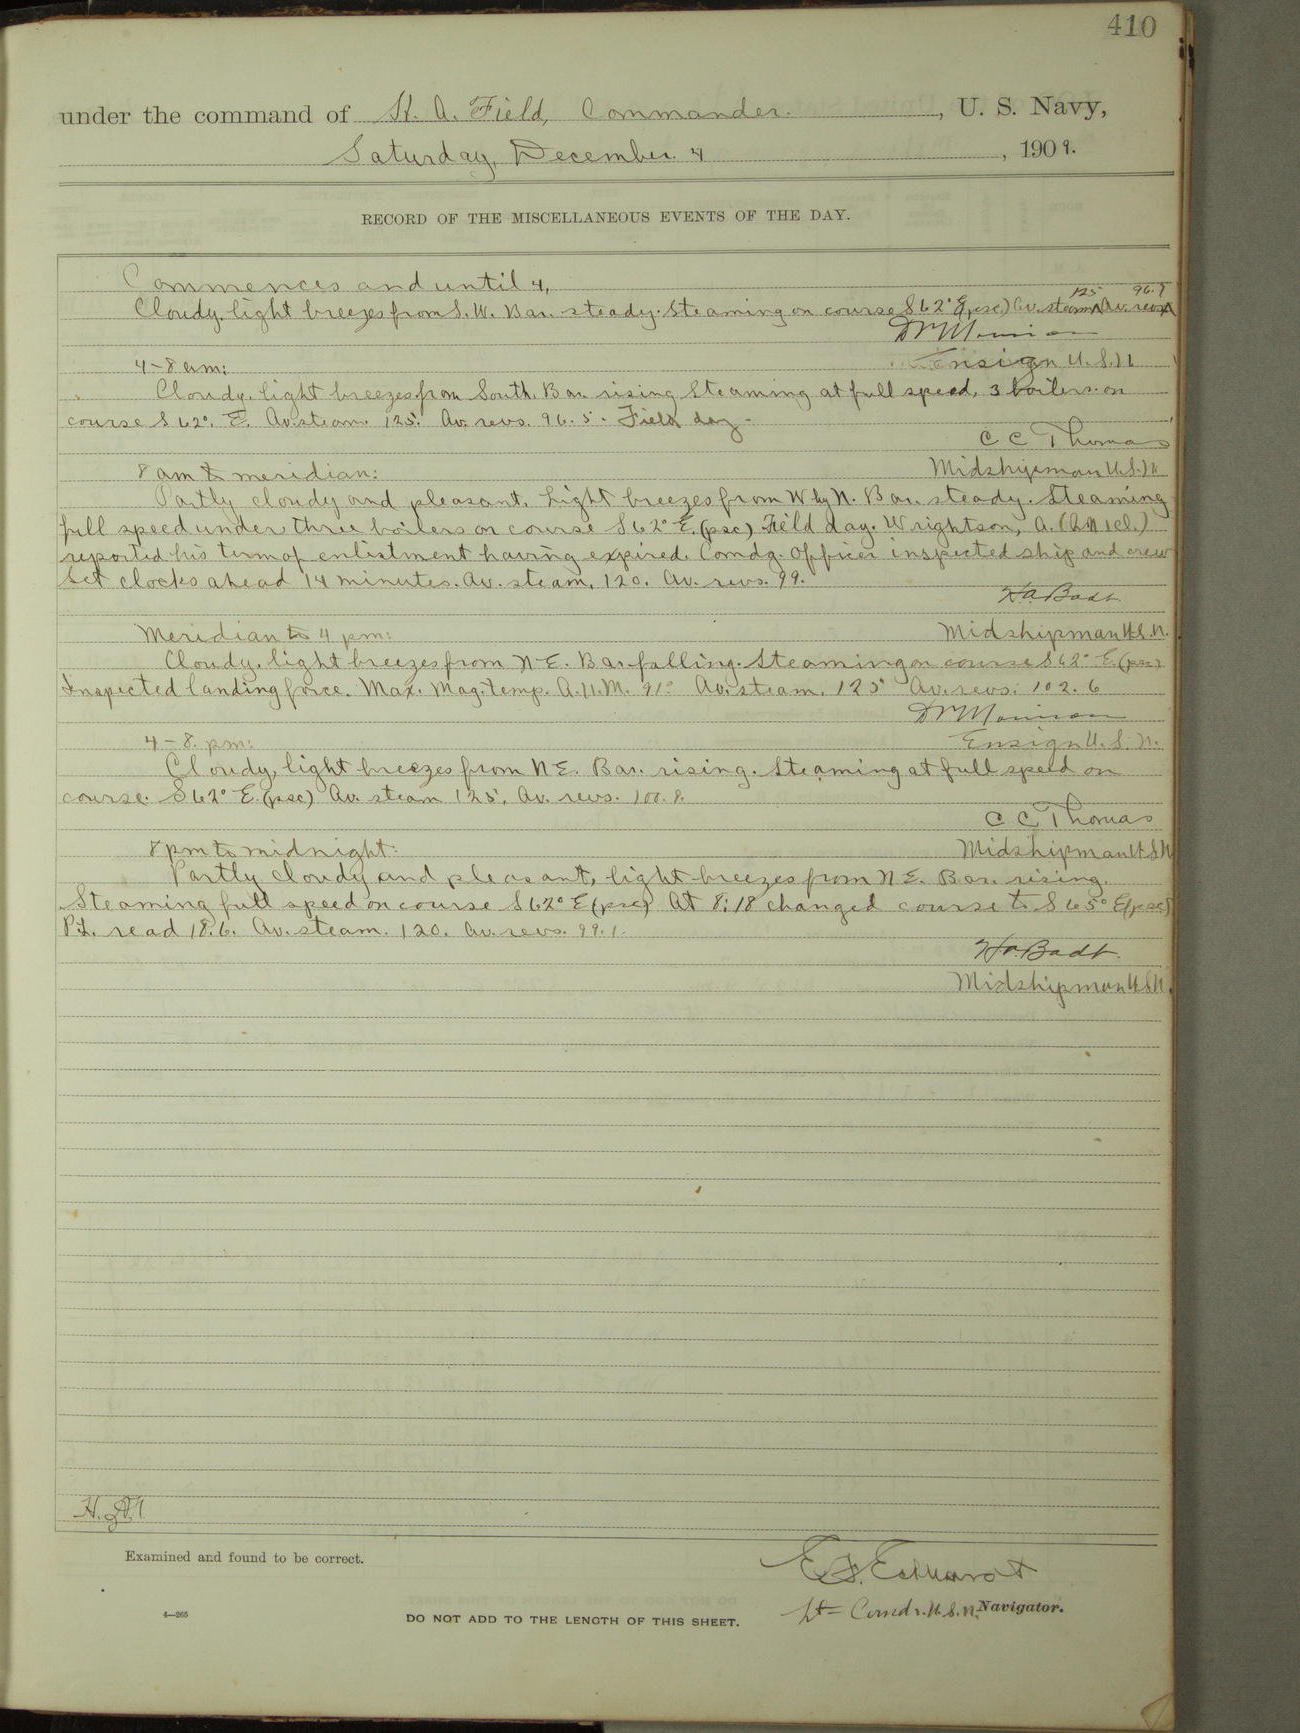 410
under the command of H. A. Field, Commander. , U. S. Navy,
Saturday, December 4 , 1909.
RECORD OF THE MISCELLANEOUS EVENTS OF THE DAY.
Commences and until 4,
125 96.7
Cloudy, light breezes from S.W. Bar. steady. Steaming on course S 62° E (psc.) Av. steam Av. revs
Ensign U.S.N
4-8 am:
Cloudy, light breezes from South. Bar. rising Steaming at full speed, 3 boilers on
course S 62°. E. Av. steam. 125. Av. revs. 96.5. Field day.
C C Thomas
8 am to meridian: Midshipman U.S.N
Partly cloudy and pleasant. Light breezes from W by N. Bar. steady. Steaming
full speed under three boilers on course S 62° E. (psc) Field day. Wrightson, A.
reported his term of enlistment having expired. Comdg. Officer inspected ship and crew
Set clocks ahead 14 minutes. Av. steam, 120. Av. revs. 99.
H. A. Badt
Meridian to 4 pm: Midshipman U.S.N.
Cloudy, light breezes from N-E. Bar. falling. Steaming on course S 62° E. (psc)
Inspected landing force. Max. Mag. temp. A.11.M. 91° Av. steam. 125 Av. revs. 102.6
4-8. pm: Ensign U.S.N.
Cloudy, light breezes from N E. Bar. rising. Steaming at full speed on
course. S 62° E. (psc) Av. steam 125, Av. revs. 100.8.
C C Thomas
8 pm to midnight: Midshipman U.S.N
Partly cloudy and pleasant, light breezes from N E. Bar. rising.
Steaming full speed on course S 62° E (psc) At 8:18 changed course to S 65° E (psc)
P.L. read 18.6. Av. steam. 120. Av. revs. 99.1.
H. A. Badt.
Midshipman U.S.N.
Examined and found to be correct.
Lt- Comdr. U.S.N. Navigator.
4—265
DO NOT ADD TO THE LENGTH OF THIS SHEET.